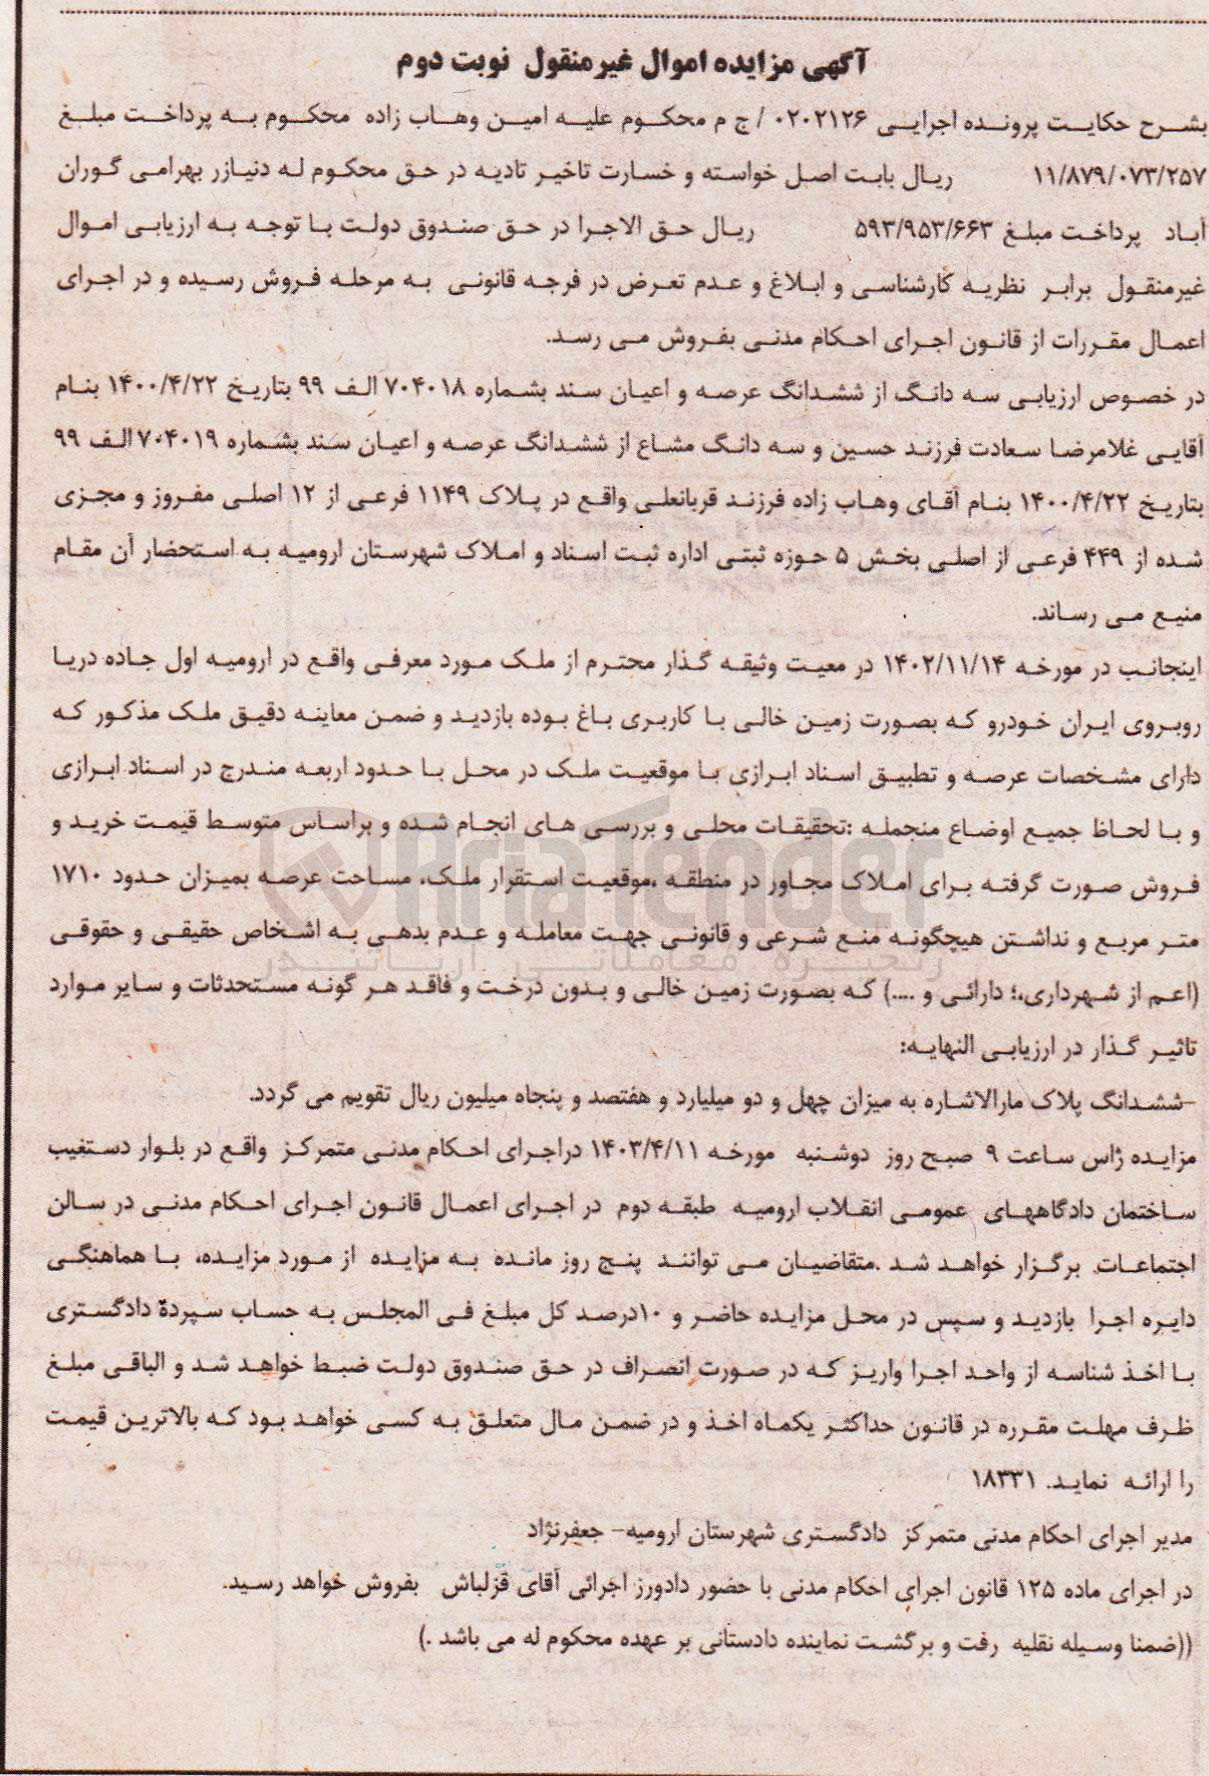 آگهی مزایده اموال غیرمنقول نوبت دوم
بشرح حکایت پرونده اجرایی ۰۲۰۲۱۲۶ / ج م محکوم علیه امین وهاب زاده محکوم به پرداخت مبلغ
۱۱/۸۷۹/۰۷۳/۲۵۷ ریال بابت اصل خواسته و خسارت تاخیر تادیه در حق محکوم له دنیازر بهرامی گوران
آباد پرداخت مبلغ ۵۹۳/۹۵۳/۶۶۳ ریال حق الاجرا در حق صندوق دولت با توجه به ارزیابی اموال
غیرمنقول برابر نظریه کارشناسی و ابلاغ و عدم تعرض در فرجه قانونی به مرحله فروش رسیده و در اجرای
اعمال مقررات از قانون اجرای احکام مدنی بفروش می رسد.
در خصوص ارزیابی سه دانگ از ششدانگ عرصه و اعیان سند بشماره ۷۰۴۰۱۸ الف ۹۹ بتاریخ ۱۴۰۰/۴/۲۲ بنام
آقایی غلامرضا سعادت فرزند حسین و سه دانگ مشاع از ششدانگ عرصه و اعیان سند بشماره ۷۰۴۰۱۹ الف ۹۹
بتاریخ ۱۴۰۰/۴/۲۲ بنام آقای وهاب زاده فرزند قربانعلی واقع در پلاک ۱۱۴۹ فرعی از ۱۲ اصلی مفروز و مجزی
شده از ۴۴۹ فرعی از اصلی بخش ۵ حوزه ثبتی اداره ثبت اسناد و املاک شهرستان ارومیه به استحضار آن مقام
منیع می رساند.
اینجانب در مورخه ۱۴۰۲/۱۱/۱۴ در معیت وثیقه گذار محترم از ملک مورد معرفی واقع در ارومیه اول جاده دریا
روبروی ایران خودرو که بصورت زمین خالی با کاربری باغ بوده بازدید و ضمن معاینه دقیق ملک مذکور که
دارای مشخصات عرصه و تطبیق اسناد ابرازی با موقعیت ملک در محل با حدود اربعه مندرج در اسناد ابرازی
و با لحاظ جمیع اوضاع منجمله :تحقیقات محلی و بررسی های انجام شده و براساس متوسط قیمت خرید و
فروش صورت گرفته برای املاک مجاور در منطقه ،موقعیت استقرار ملک، مساحت عرصه بمیزان حدود ۱۷۱۰
متر مربع و نداشتن هیچگونه منع شرعی و قانونی جهت معامله و عدم بدهی به اشخاص حقیقی و حقوقی
(اعم از شهرداری،؛ دارائی و ....) که بصورت زمین خالی و بدون درخت و فاقد هر گونه مستحدثات و سایر موارد
تاثیر گذار در ارزیابی النهایه:
-ششدانگ پلاک مارالاشاره به میزان چهل و دو میلیارد و هفتصد و پنجاه میلیون ریال تقویم می گردد.
مزایده ژاس ساعت ۹ صبح روز دوشنبه مورخه ۱۴۰۳/۴/۱۱ دراجرای احکام مدنی متمرکز واقع در بلوار دستغیب
ساختمان دادگاههای عمومی انقلاب ارومیه طبقه دوم در اجرای اعمال قانون اجرای احکام مدنی در سالن
اجتماعات برگزار خواهد شد .متقاضیان می توانند پنج روز مانده به مزایده از مورد مزایده، با هماهنگی
دایره اجرا بازدید و سپس در محل مزایده حاضر و ۱۰درصد کل مبلغ فی المجلس به حساب سپردهٔ دادگستری
با اخذ شناسه از واحد اجرا واریز که در صورت انصراف در حق صندوق دولت ضبط خواهد شد و الباقی مبلغ
ظرف مهلت مقرره در قانون حداکثر یکماه اخذ و در ضمن مال متعلق به کسی خواهد بود که بالاترین قیمت
را ارائه نماید. ۱۸۳۳۱
مدیر اجرای احکام مدنی متمرکز دادگستری شهرستان ارومیه- جعفرنژاد
در اجرای ماده ۱۲۵ قانون اجرای احکام مدنی با حضور دادورز اجرائی آقای قزلباش بفروش خواهد رسید.
((ضمنا وسیله نقلیه رفت و برگشت نماینده دادستانی بر عهده محکوم له می باشد .)
AriaTender
زنجیره معاملاتی آریاتندر